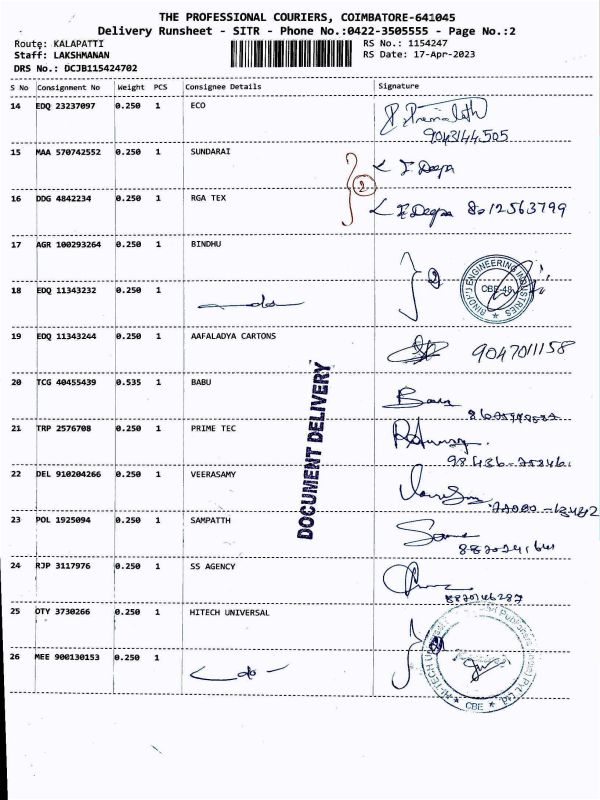 THE PROFESSIONAL COURIERS, COIMBATORE-641045
Delivery Runsheet - SITR - Phone No.:0422-3505555 - Page No.:2
Route: KALAPATTI RS No.: 1154247
Staff: LAKSHMANAN RS Date: 17-Apr-2023
DRS No.: DCJB115424702
S No Consignment No Weight PCS Consignee Details Signature
14 EDQ 23237097 0.250 1 ECO
9043144505
15 MAA 570742552 0.250 1 SUNDARAI
2
16 DDG 4842234 0.250 1 RGA TEX 8012563799
17 AGR 100293264 0.250 1 BINDHU
2
BINDHU ENGINEERING INDUSTRIES
CBE-48
18 EDQ 11343232 0.250 1 do
19 EDQ 11343244 0.250 1 AAFALADYA CARTONS 9047011158
20 TCG 40455439 0.535 1 BABU
21 TRP 2576708 0.250 1 PRIME TEC
22 DEL 910204266 0.250 1 VEERASAMY
23 POL 1925094 0.250 1 SAMPATTH
24 RJP 3117976 0.250 1 SS AGENCY
DOCUMENT DELIVERY
25 OTY 3730266 0.250 1 HITECH UNIVERSAL
CBE
26 MEE 900130153 0.250 1 do